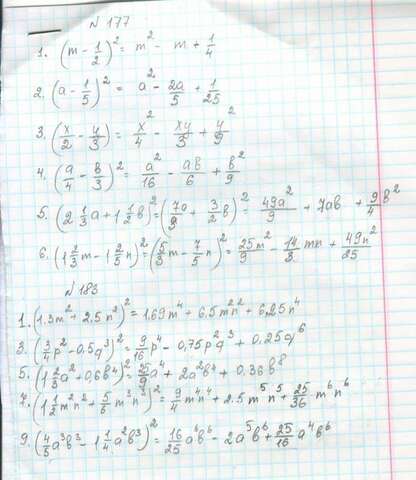 N 177
1. (m - 1/2)² = m² - m + 1/4
2. (a - 1/5)² = a² - 2a/5 + 1/25
3. (x/2 - y/3)² = x²/4 - xy/3 + y²/9
4. (a/4 - b/3)² = a²/16 - ab/6 + b²/9
5. (2 1/3 a + 1 1/2 b)² = (7a/9 + 3/2 b)² = 49a²/9 + 7ab + 9/4 b²
6. (1 2/3 m - 1 2/5 n)² = (5/3 m - 7/5 n)² = 25m²/9 - 14/3 mn + 49n²/25
N 183
1. (1.3m² + 2.5n²)² = 1.69m⁴ + 6.5m²n² + 6,25n⁴
3. (3/4 p² - 0.5q³)² = 9/16 p⁴ - 0,75p²q³ + 0.25q⁶
5. (1 2/3 a² + 0,6b⁴)² = 25/9 a⁴ + 2a²b⁴ + 0.36b⁸
7. (1 1/2 m²n² + 5/6 m³n³)² = 9/4 m⁴n⁴ + 2.5m⁵n⁵ + 25/36 m⁶n⁶
9. (4/5 a³b³ - 1 1/4 a²b³)² = 16/25 a⁶b⁶ - 2a⁵b⁶ + 25/16 a⁴b⁶